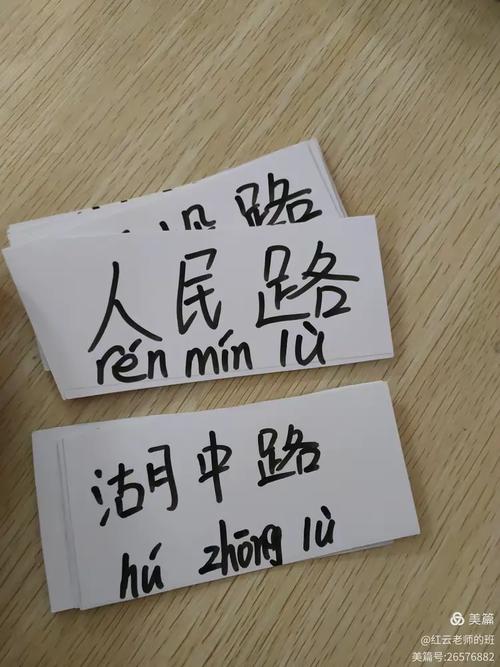 路
人民路
rén mín lù
湖中路
hú zhōng lù
美篇
@红云老师的班
美篇号:26576882